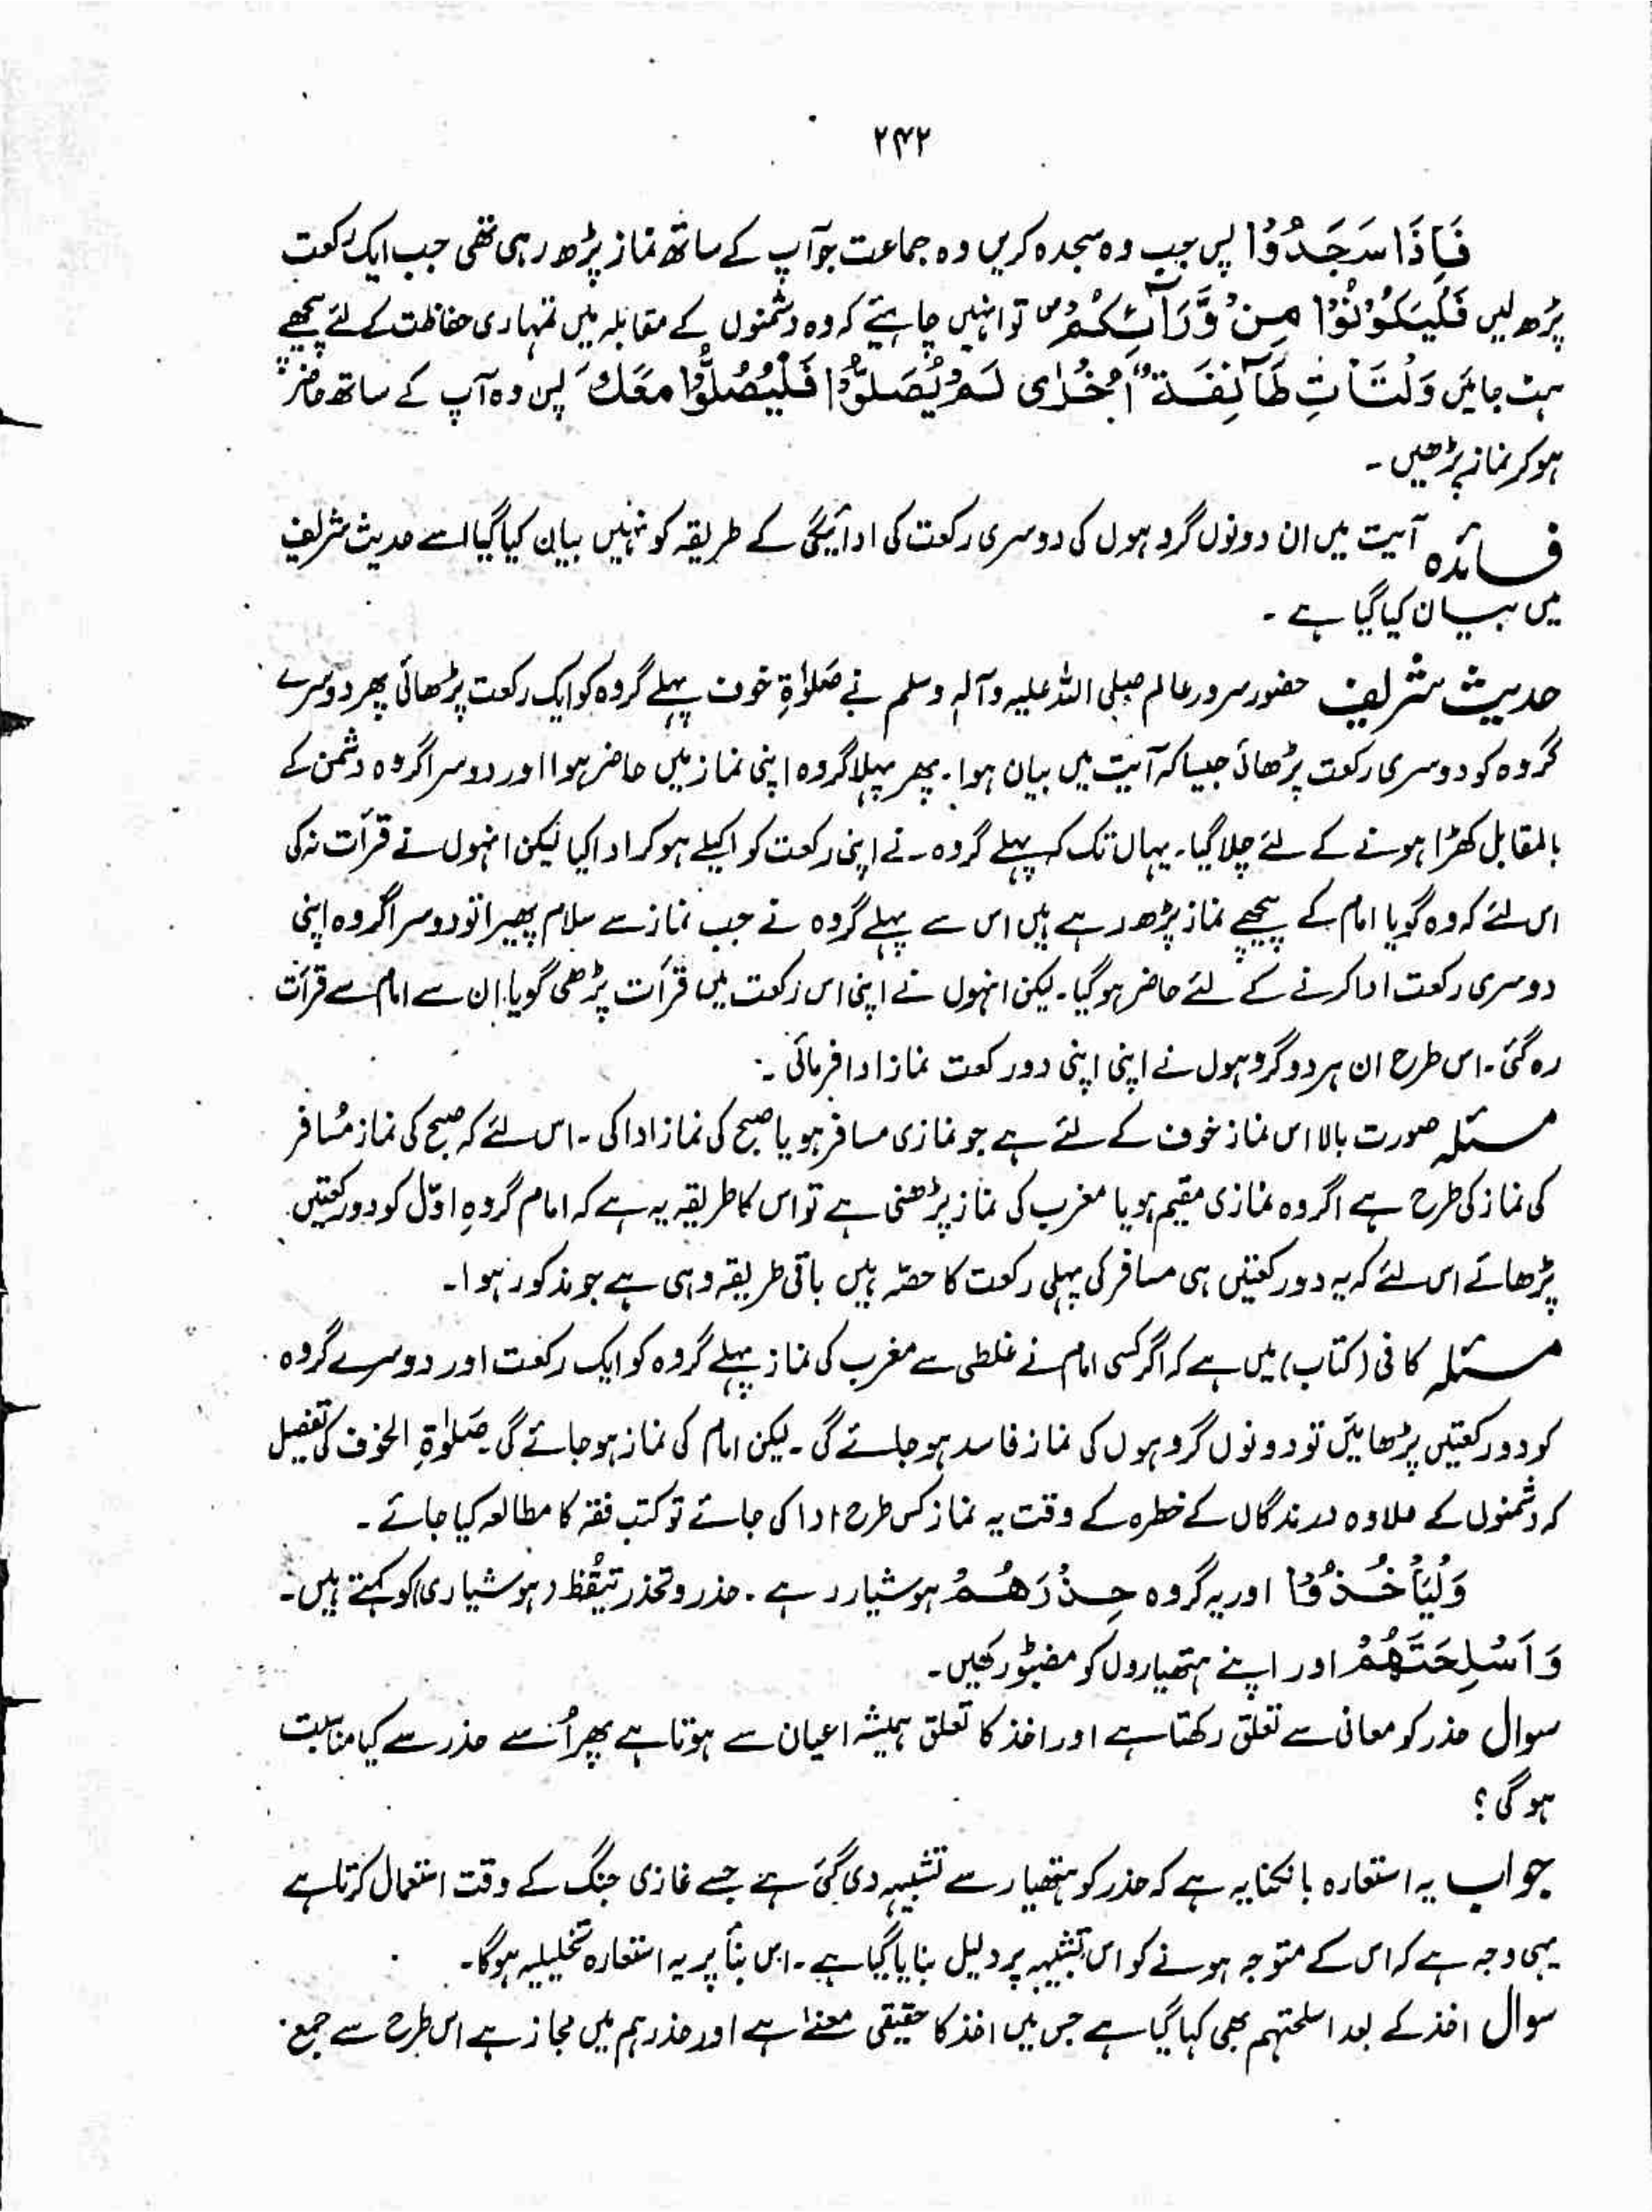 ۲۴۲
فَاِذَا سَجَدُوْا پس جب وہ سجدہ کریں وہ جماعت جو آپ کے ساتھ نماز پڑھ رہی تھی جب ایک رکعت
پڑھ لیں فَلْيَكُوْنُوْا مِنْ وَّرَآئِكُمْ ص تو انہیں چاہئے کہ وہ دشمنوں کے مقابلہ میں تمہاری حفاظت کے لئے پیچھے
ہٹ جایٔں وَلْتَأْتِ طَآئِفَةٌ اُخْرٰى لَمْ يُصَلُّوْا فَلْيُصَلُّوْا مَعَكَ پس وہ آپ کے ساتھ حاضر
ہو کر نماز پڑھیں ۔
فائدہ آیت میں ان دونوں گروہوں کی دوسری رکعت کی ادائیگی کے طریقہ کو نہیں بیان کیا گیا اسے حدیث شریف
میں بیان کیا گیا ہے ۔
حدیث شریف حضور سرور عالم صلی اللہ علیہ وآلہ وسلم نے صَلوٰۃِ خوف پہلے گروہ کو ایک رکعت پڑھائی پھر دوسرے
گروہ کو دوسری رکعت پڑھائی جیسا کہ آیت میں بیان ہوا۔ پھر پہلا گروہ اپنی نماز میں حاضر ہوا اور دوسرا گروہ دشمن کے
بالمقابل کھڑا ہونے کے لئے چلا گیا۔ یہاں تک کہ پہلے گروہ نے اپنی رکعت کو اکیلے ہو کر ادا کیا لیکن انہوں نے قرأت نہ کی
اس لئے کہ وہ گویا امام کے پیچھے نماز پڑھ رہے ہیں اس سے پہلے گروہ نے جب نماز سے سلام پھیرا تو دوسرا گروہ اپنی
دوسری رکعت ادا کرنے کے لئے حاضر ہو گیا۔ لیکن انہوں نے اپنی اس رکعت میں قرأت پڑھی گویا ان سے امام سے قرأت
رہ گئی۔ اس طرح ان ہر دو گروہوں نے اپنی اپنی دو رکعت نماز ادا فرمائی ۔
مسئلہ صورت بالا اس نماز خوف کے لئے ہے جو نمازی مسافر ہو یا صبح کی نماز ادا کی ۔ اس لئے کہ صبح کی نماز مُسافر
کی نماز کی طرح ہے اگر وہ نمازی مقیم ہو یا مغرب کی نماز پڑھنی ہے تو اس کا طریقہ یہ ہے کہ امام گروہِ اوّل کو دو رکعتیں
پڑھائے اس لئے کہ یہ دو رکعتیں ہی مسافر کی پہلی رکعت کا حصّہ ہیں باقی طریقہ وہی ہے جو مذکور ہوا۔
مسئلہ کافی (کتاب) میں ہے کہ اگر کسی امام نے غلطی سے مغرب کی نماز پہلے گروہ کو ایک رکعت اور دوسرے گروہ
کو دو رکعتیں پڑھائیں تو دونوں گروہوں کی نماز فاسد ہو جائے گی ۔ لیکن امام کی نماز ہو جائے گی۔ صَلوٰۃِ الخوف کی تفصیل
کہ دشمنوں کے علاوہ درندگاں کے خطرہ کے وقت یہ نماز کس طرح ادا کی جائے تو کتب فقہ کا مطالعہ کیا جائے ۔
وَلْيَأْخُذُوْا اور یہ گروہ حِذْرَهُمْ ہوشیار رہے ۔ حذر و تحذر تیقُّظ (ہوشیاری) کو کہتے ہیں۔
وَاَسْلِحَتَهُمْ اور اپنے ہتھیاروں کو مضبوط رکھیں۔
سوال حذر کو معانی سے تعلق رکھتا ہے اور اخذ کا تعلق ہمیشہ اعیان سے ہوتا ہے پھر اُسے حذر سے کیا مناسبت
ہو گی ؟
جواب یہ استعارہ بالکنایہ ہے کہ حذر کو ہتھیار سے تشبیہہ دی گئی ہے جسے غازی جنگ کے وقت استعمال کرتا ہے
یہی وجہ ہے کہ اس کے متوجہ ہونے کو اس تشبیہہ پر دلیل بنایا گیا ہے۔ اس بنأ پر یہ استعارہ تخلیلیہ ہوگا۔
سوال اخذ کے بعد اسلحتہم بھی کہا گیا ہے جس میں اخذ کا حقیقی معنےٰ ہے اور حذرہم میں مجاز ہے اس طرح سے جمع